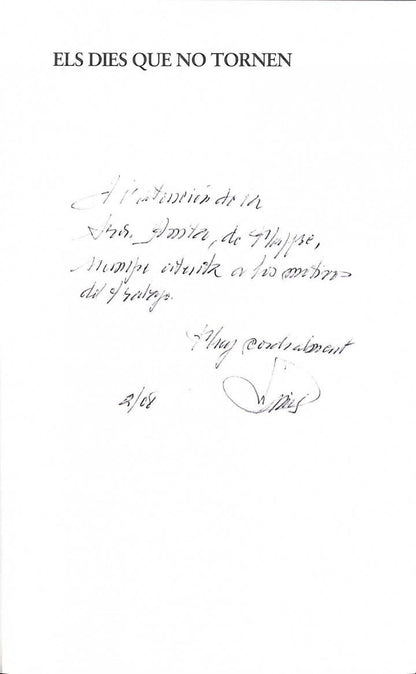 ELS DIES QUE NO TORNEN
A l'atención de la
Sra. Anita, de Mapfre,
siempre atenta a los motivos
del trabajo.
Muy cordialment
2/08